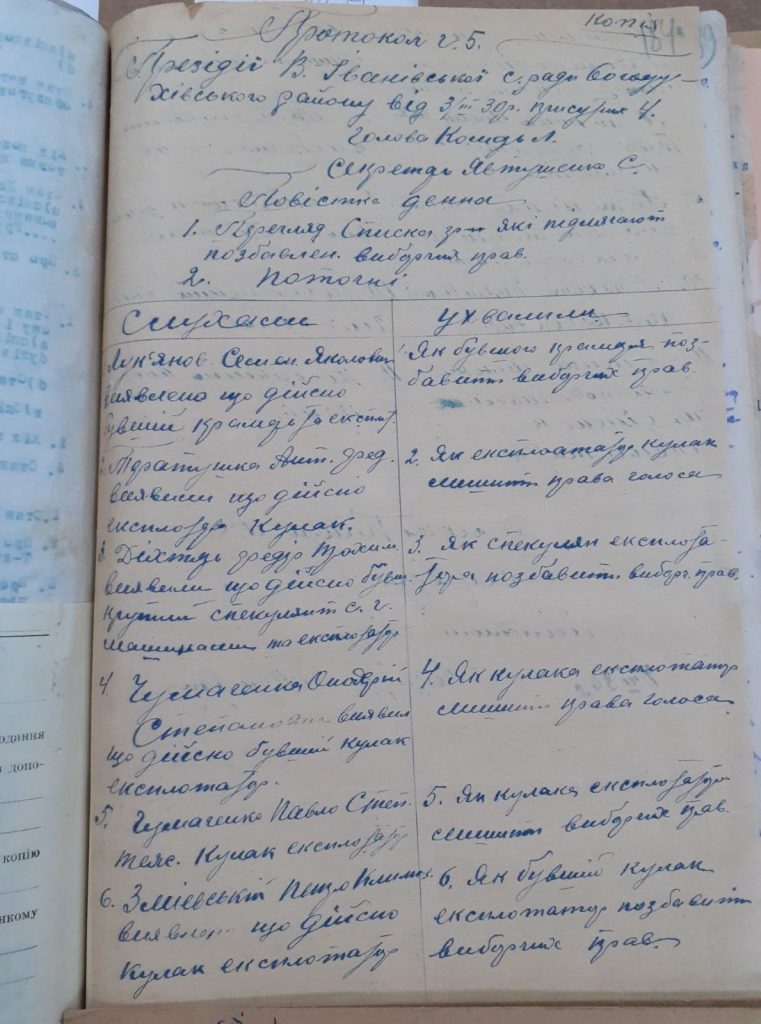 Копія
184
Протокол ч. 5.
Презідії В. Іванівської с.ради Богоду-
хівського району від 3/III 30р. присутніх 4.
Голова
Секретарь Явтушенко С.
Повістка денна
1. Перегляд Списка які підлягают
позбавлен. виборчих прав.
2. Поточні.
Слухали
Ухвалили
Лук'янов Семен Яковлевич
виявлено що дійсно
бувший крамарь та експлот.
Як бувшого крамаря поз-
бавить виборчих прав.
2. Ант. Фед.
виявили що дійсно
експлотатор Кулак.
2. Як експлоататор кулак
лишить права голоса
3. Дігтярь Федір
виявили що дійсно бувш.
крупний спекулянт с. г.
машинами та експлотатор
3. Як спекулян експлота-
тора позбавить виборч. прав.
4. Чумаченка Онопрій
Степанович виявил
що дійсно бувший кулак
експлотатор.
4. Як кулака експлотатор
лишить права голоса
5. Чумаченко Павло Степ.
теж. Кулак експлотатор
5. Як кулака експлотатора
лишить виборчих прав.
6. Зміевській Петро Климов.
виявлено що дійсно
кулак експлотатор
6. Як бувший кулак
експлотатор позбавить
виборчих прав.
одання
в допо-
копію
нкому